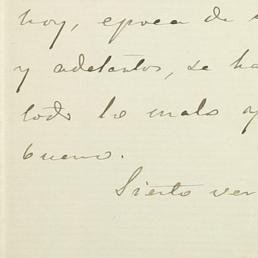 hoy, epoca de
y adelantos, se ha
todo lo malo y
bueno.
Siento ver